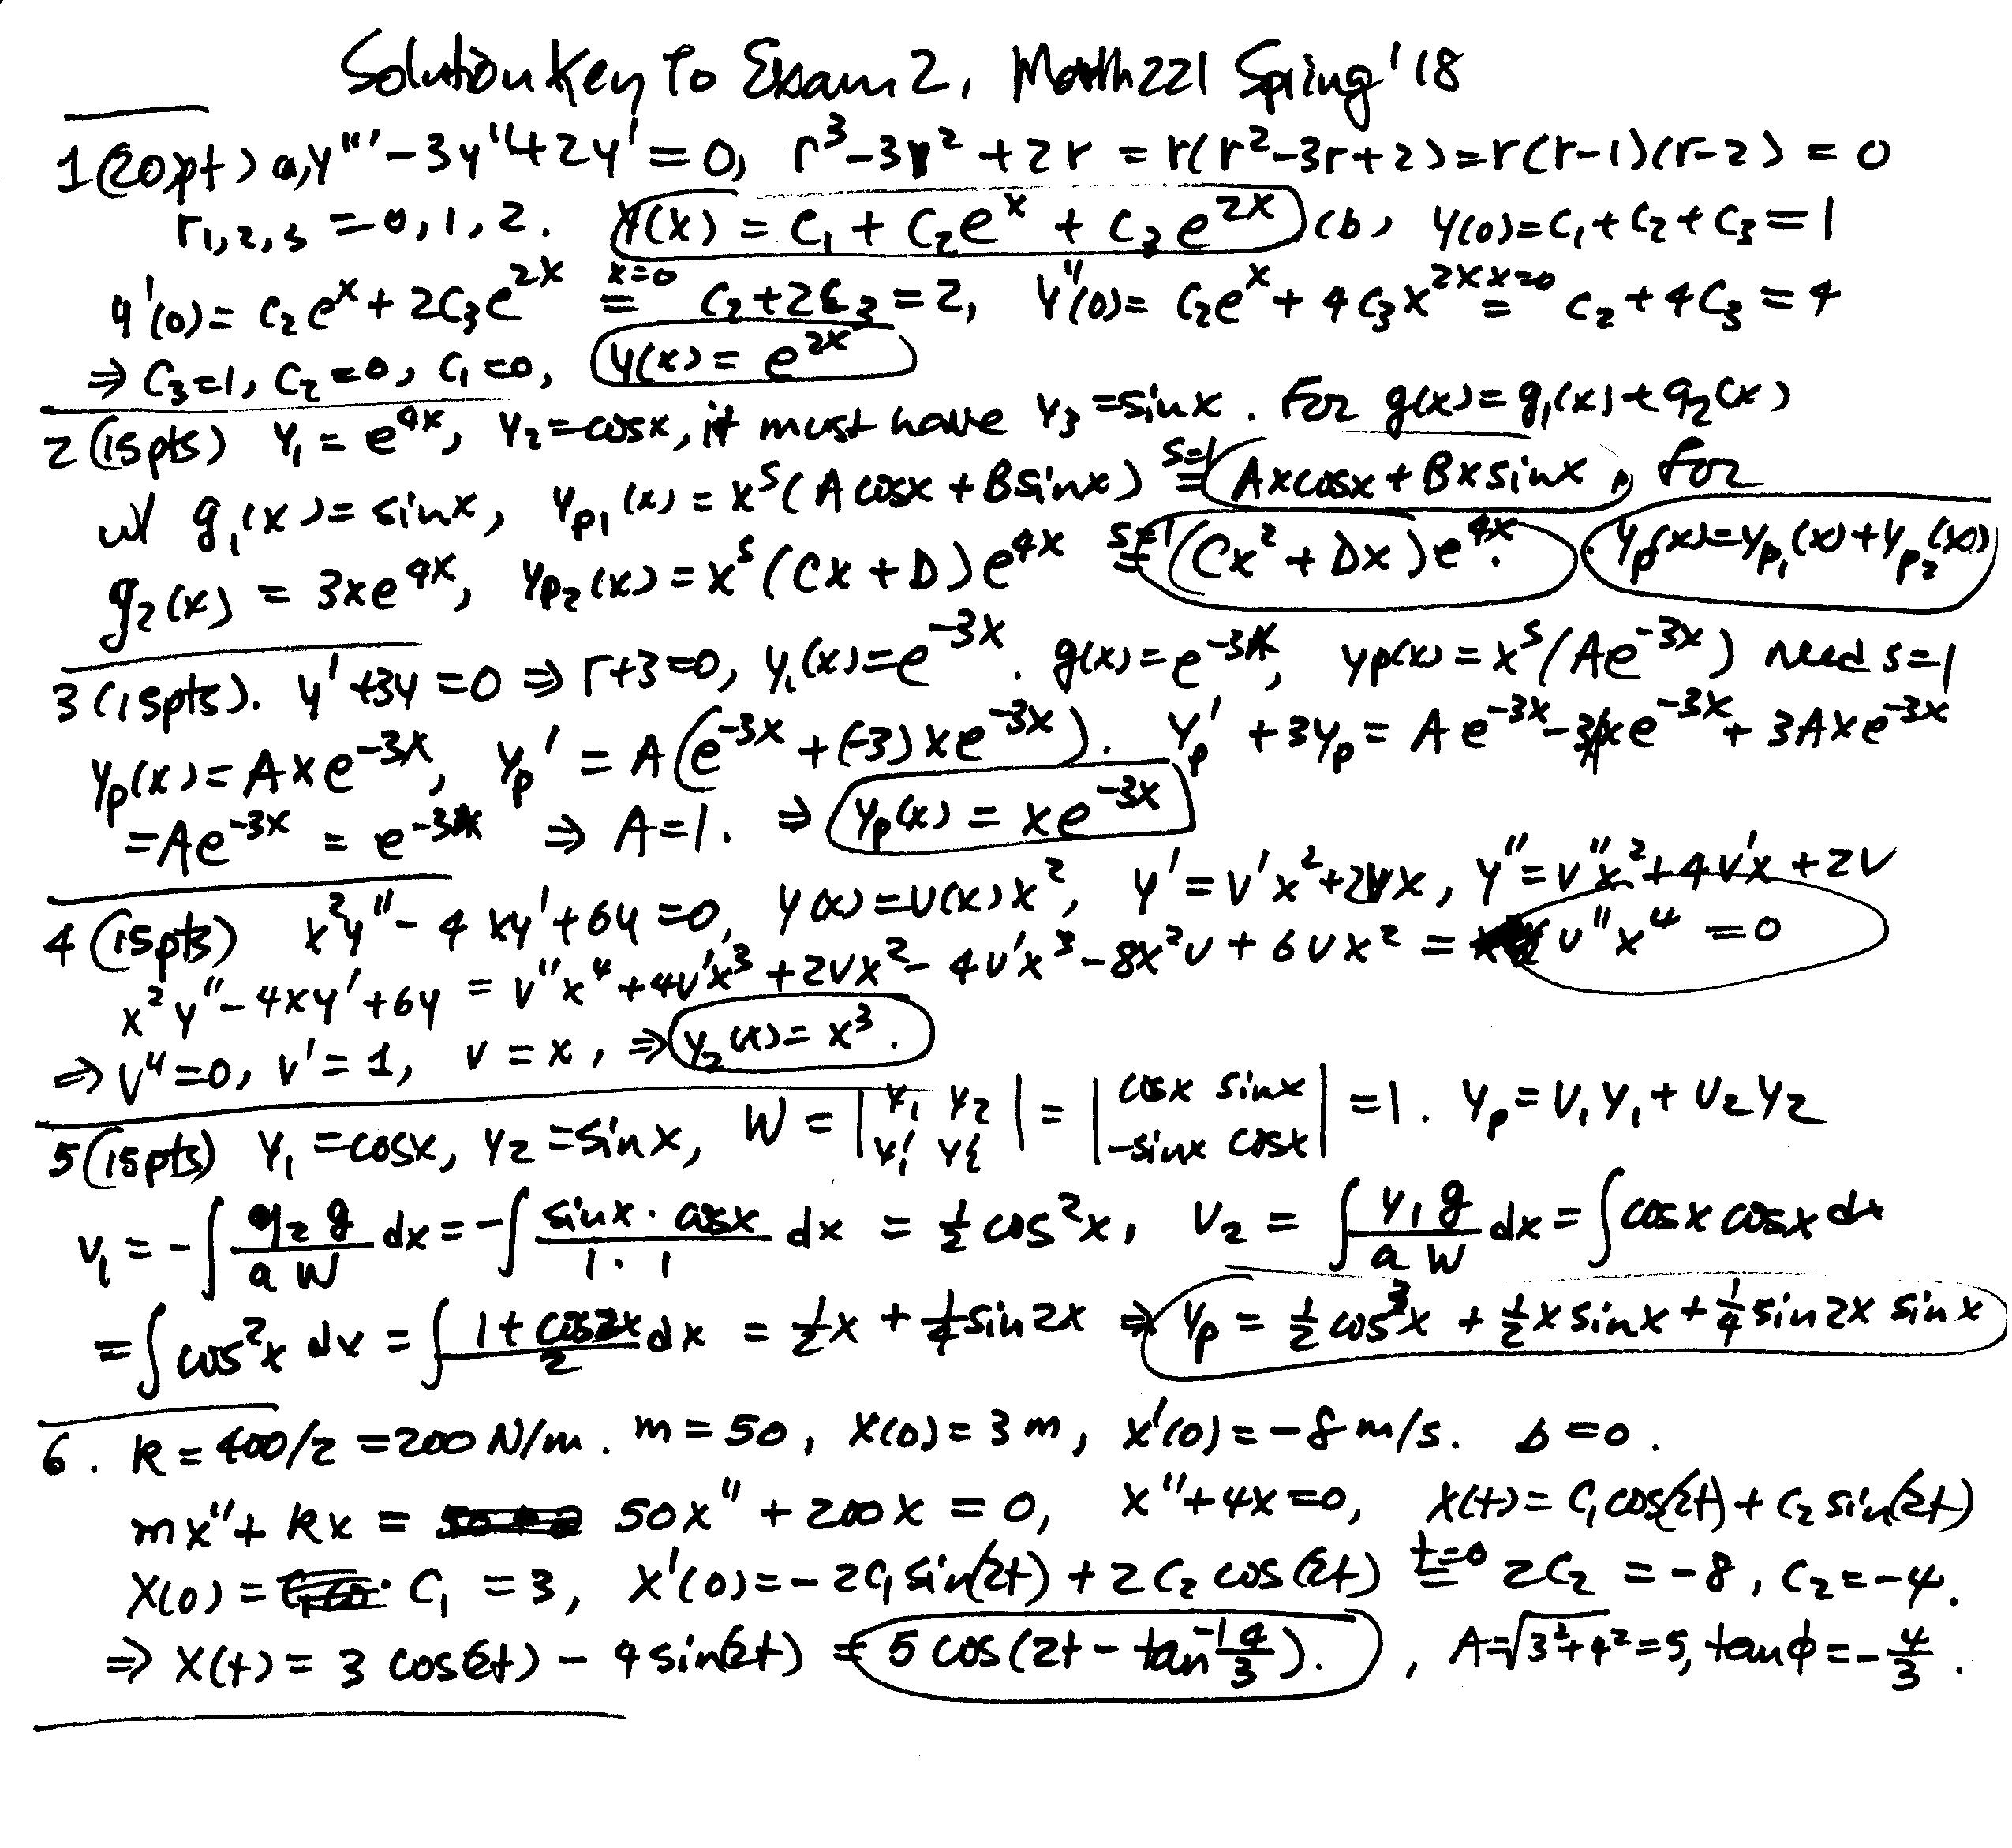 Solution Key to Exam 2, Math 221 Spring '18
1(20pt) a, y''' - 3y'' + 2y' = 0, r³ - 3r² + 2r = r(r² - 3r + 2) = r(r-1)(r-2) = 0
r₁,₂,₃ = 0, 1, 2. y(x) = c₁ + c₂eˣ + c₃e²ˣ (b) y(0) = c₁ + c₂ + c₃ = 1
y'(0) = c₂eˣ + 2c₃e²ˣ x=0 = c₂ + 2c₃ = 2, y''(0) = c₂eˣ + 4c₃x²ˣ x=0 = c₂ + 4c₃ = 4
⇒ c₃ = 1, c₂ = 0, c₁ = 0, y(x) = e²ˣ
2 (15pts) y₁ = e⁴ˣ, y₂ = cosx, it must have y₃ = sinx. For g(x) = g₁(x) + g₂(x)
w/ g₁(x) = sinx, yp₁(x) = xˢ(A cosx + B sinx) s=1 = Axcosx + Bxsinx, for
g₂(x) = 3xe⁴ˣ, yp₂(x) = xˢ(Cx + D)e⁴ˣ s=1 = (Cx² + Dx)e⁴ˣ. yp(x) = yp₁(x) + yp₂(x)
3 (15pts). y' + 3y = 0 ⇒ r+3=0, y₁(x) = e⁻³ˣ. g(x) = e⁻³ˣ, yp(x) = xˢ(Ae⁻³ˣ) need s=1
yp(x) = Axe⁻³ˣ, yp' = A(e⁻³ˣ + (-3)xe⁻³ˣ). yp' + 3yp = Ae⁻³ˣ - 3Axe⁻³ˣ + 3Axe⁻³ˣ
= Ae⁻³ˣ = e⁻³ˣ ⇒ A=1. ⇒ yp(x) = xe⁻³ˣ
4 (15pts) x²y'' - 4xy' + 6y = 0, y(x) = v(x)x², y' = v'x² + 2vx, y'' = v''x² + 4v'x + 2v
x²y'' - 4xy' + 6y = v''x⁴ + 4v'x³ + 2vx² - 4v'x³ - 8x²v + 6vx² = v''x⁴ = 0
⇒ v'' = 0, v' = 1, v = x, ⇒ y₂(x) = x³.
5 (15pts) y₁ = cosx, y₂ = sinx, W = |y₁ y₂; y₁' y₂'| = |cosx sinx; -sinx cosx| = 1. yp = v₁y₁ + v₂y₂
v₁ = -∫ y₂g/(aW) dx = -∫ (sinx · cosx)/(1·1) dx = ½ cos²x, v₂ = ∫ y₁g/(aW) dx = ∫ cosx cosx dx
= ∫ cos²x dx = ∫ (1 + cos2x)/2 dx = ½x + ¼ sin2x ⇒ yp = ½ cos³x + ½ x sinx + ¼ sin2x sinx
6. k = 400/2 = 200 N/m. m = 50, x(0) = 3 m, x'(0) = -8 m/s. b = 0.
mx'' + kx = 50x'' + 200x = 0, x'' + 4x = 0, x(t) = c₁cos(2t) + c₂ sin(2t)
x(0) = c₁ = 3, x'(0) = -2c₁ sin(2t) + 2c₂ cos(2t) t=0 = 2c₂ = -8, c₂ = -4.
⇒ x(t) = 3 cos(2t) - 4 sin(2t) = 5 cos(2t - tan⁻¹ 4/3)., A = √3²+4² = 5, tan ϕ = -4/3.